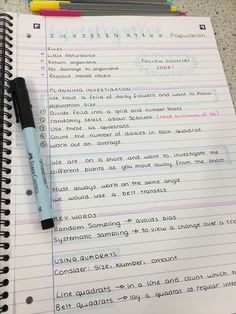 INVESTIGATIVE Population
RULES
Little disturbance
Return organisms
No damage to organisms
Replace moved objects
FOLLOW COUNTRY
CODE!
PLANNING INVESTIGATION
We have a field of daisy flowers and want to know
population size.
Divide field into a grid and number boxes
randomly select about 30 boxes (need minimum of 30)
Use these as quadrats
Count the number of daisies in each quadrat
work out an average
We are on a shore and want to investigate the
different plants as you move away from the shore
Must always work on the same angle
We would use a belt transect
KEY WORDS
Random Sampling → avoids bias
Systematic sampling → to view a change over a tra
USING QUADRATS
Consider: Size, Number, amount
Line quadrats → in a line and count which to
Belt quadrats → lay a quadrat at regular inter